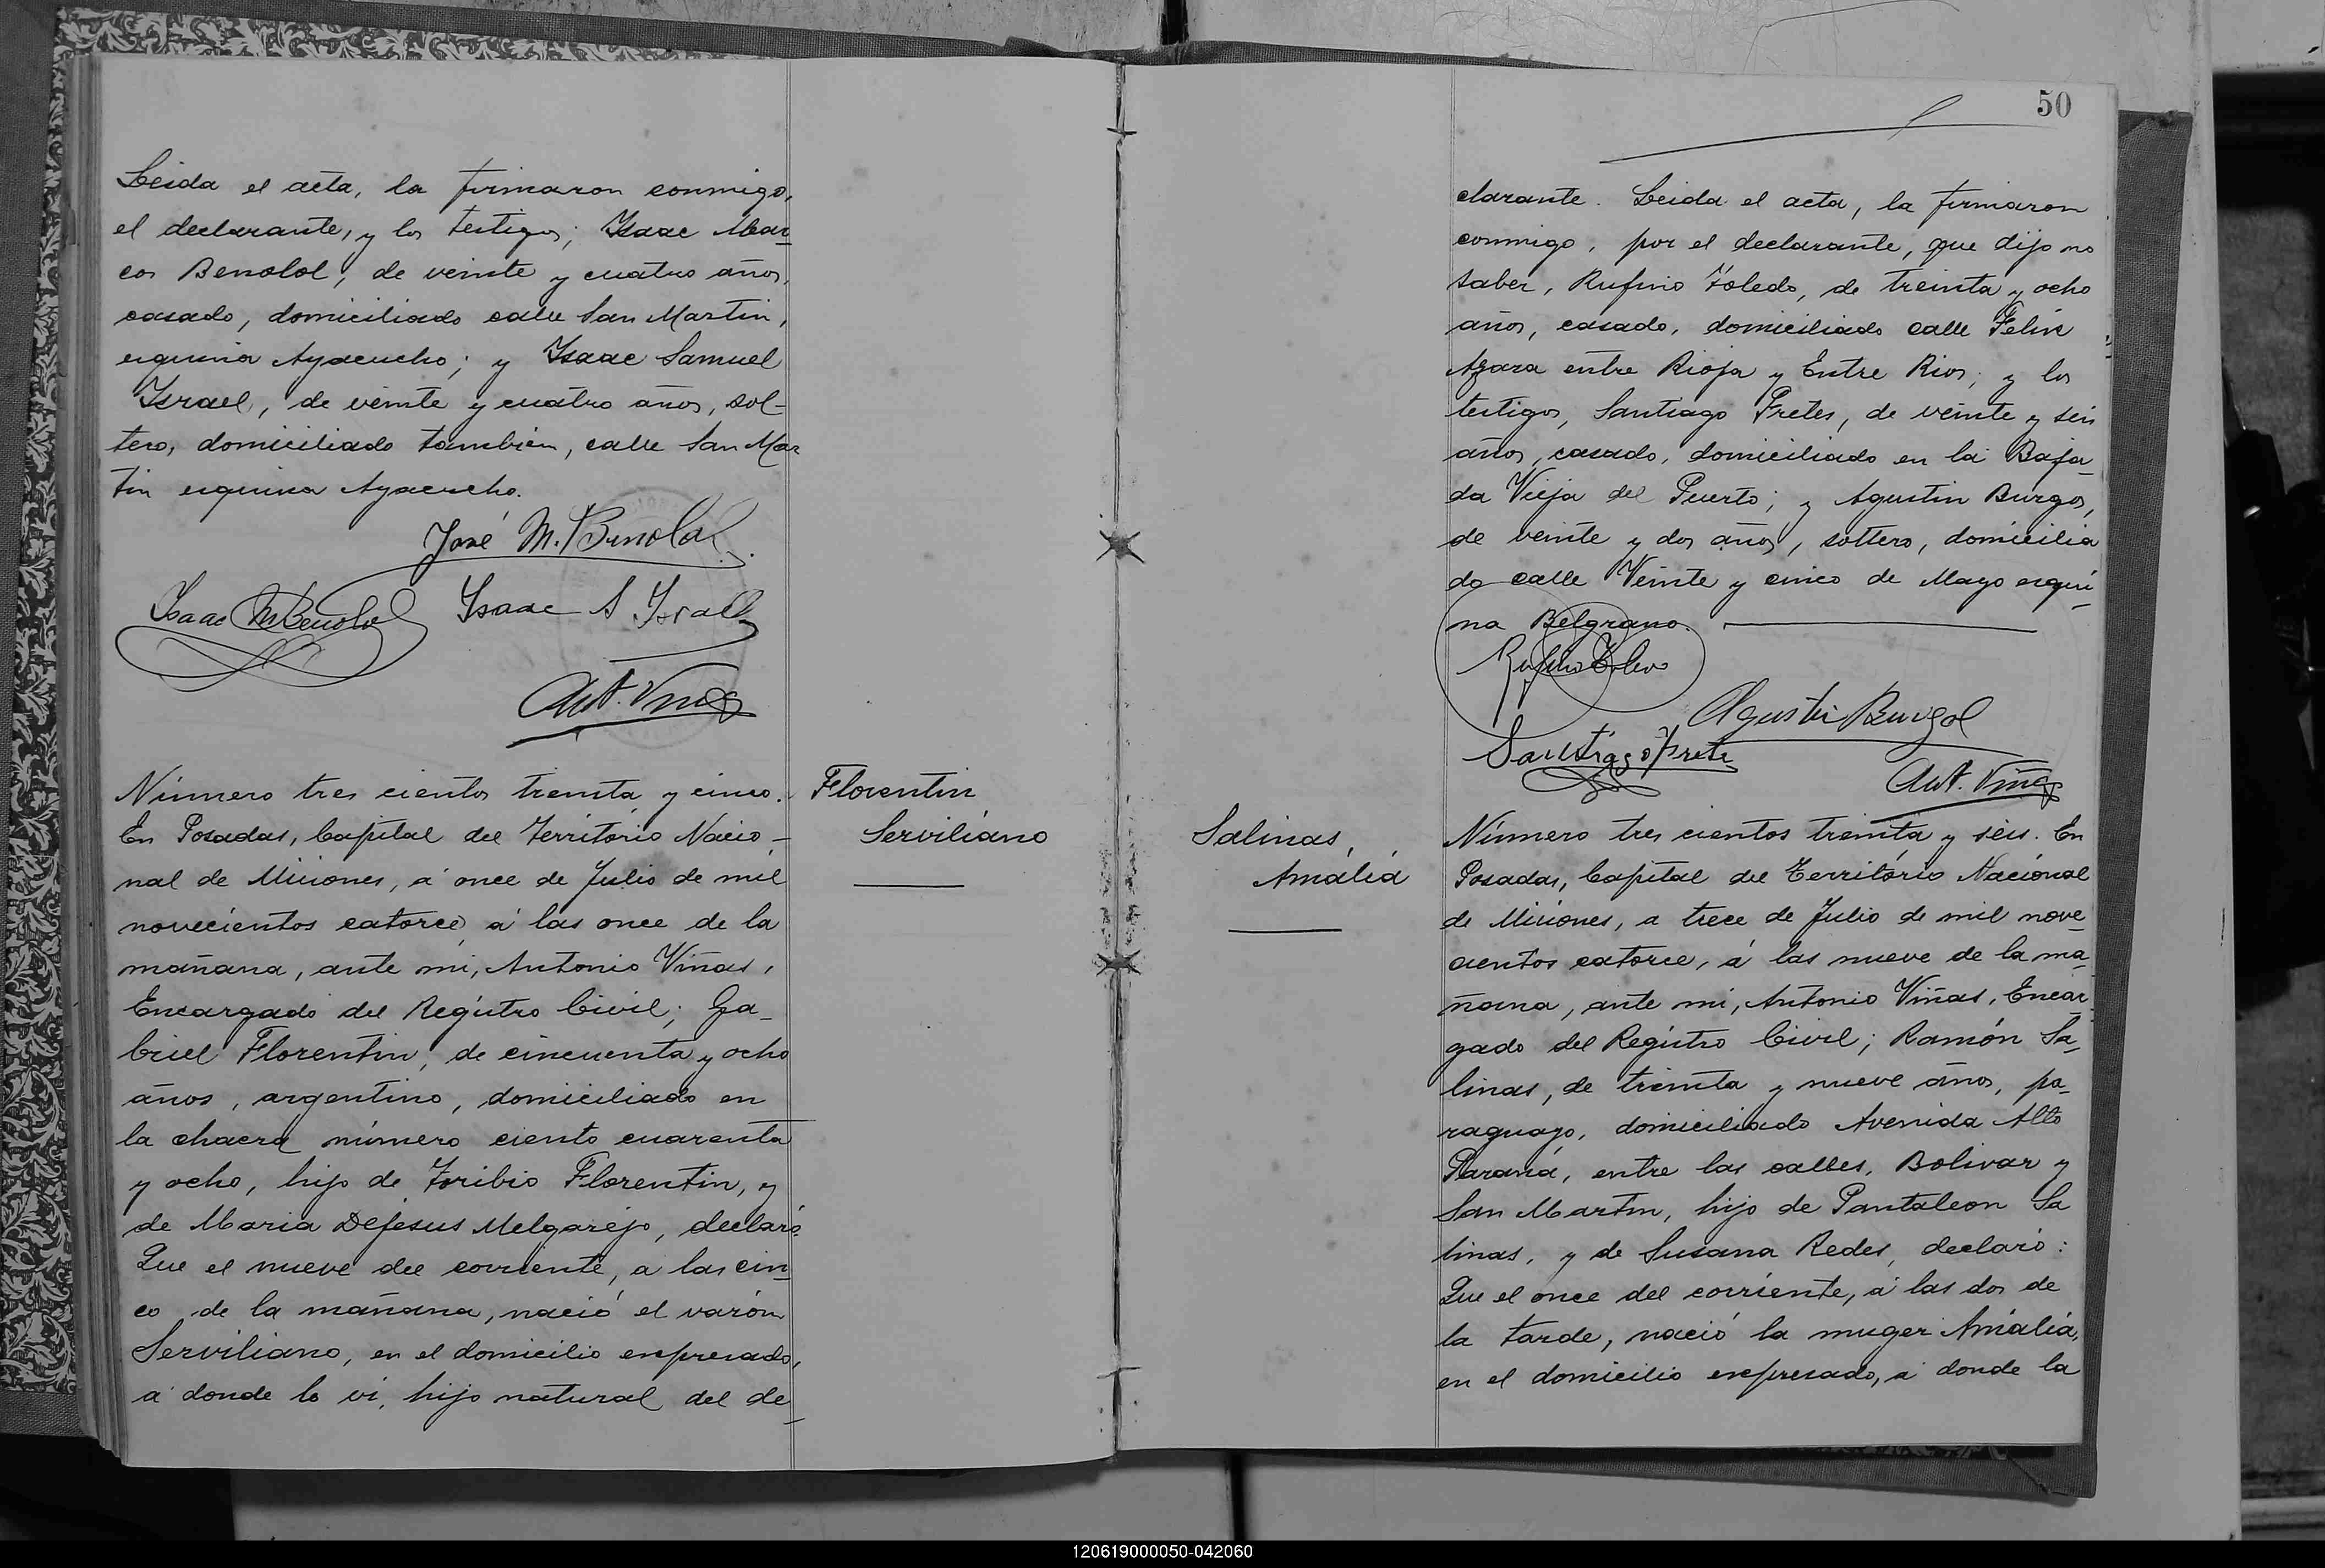 Leida el acta, la firmaron conmigo,
el declarante, y los testigos; Isaac Mar-
cos Benolol, de veinte y cuatro años,
casado, domiciliado calle San Martin,
esquina Ayacucho; y Isaac Samuel
Israel, de veinte y cuatro años, sol-
tero, domiciliado tambien, calle San Mar
tin esquina Ayacucho.
José M. Benolol
Isaac M Benolol Isaac S Israel
Ant. Viñas
Número tres cientos treinta y cinco.
En Posadas, Capital del Territorio Nacio-
nal de Misiones, á once de Julio de mil
novecientos catorce, á las once de la
mañana, ante mi, Antonio Viñas,
Encargado del Registro Civil; Ga-
briel Florentin, de cincuenta y ocho
años, argentino, domiciliado en
la chacra número ciento cuarenta
y ocho, hijo de Toribio Florentin, y
de Maria DeJesus Melgarejo, declaró:
Que el nueve del corriente, a las cin-
co de la mañana, nació el varón
Serviliano, en el domicilio expresado,
a donde lo vi, hijo natural del de-
Florentin
Serviliano
50
clarante. Leida el acta, la firmaron
conmigo, por el declarante, que dijo no
saber, Rufino Toledo, de treinta y ocho
años, casado, domiciliado calle Felix
Azara entre Rioja y Entre Rios; y los
testigos, Santiago Fretes, de veinte y seis
años, casado, domiciliado en la Baja-
da Vieja del Puerto; y Agustin Burgos,
de veinte y dos años, soltero, domicilia
do calle Veinte y cinco de Mayo esqui-
na Belgrano.
Rufino Toledo
Agustin Burgos
Santiago Frete
Ant. Viñas
Salinas,
Amália
Número tres cientos treinta y seis. En
Posadas, Capital del Território Nacional
de Misiones, a trece de Julio de mil nove-
cientos catorce, á las nueve de la ma-
ñana, ante mi, Antonio Viñas, Encar-
gado del Registro Civil; Ramón Sa-
linas, de treinta y nueve años, pa-
raguayo, domiciliado Avenida Alto
Paraná, entre las calles, Bolivar y
San Martin, hijo de Pantaleon Sa
linas, y de Susana Redes, declaró:
Que el once del corriente, á las dos de
la tarde, nació la muger Amália,
en el domicilio expresado, á donde la
120619000050-042060